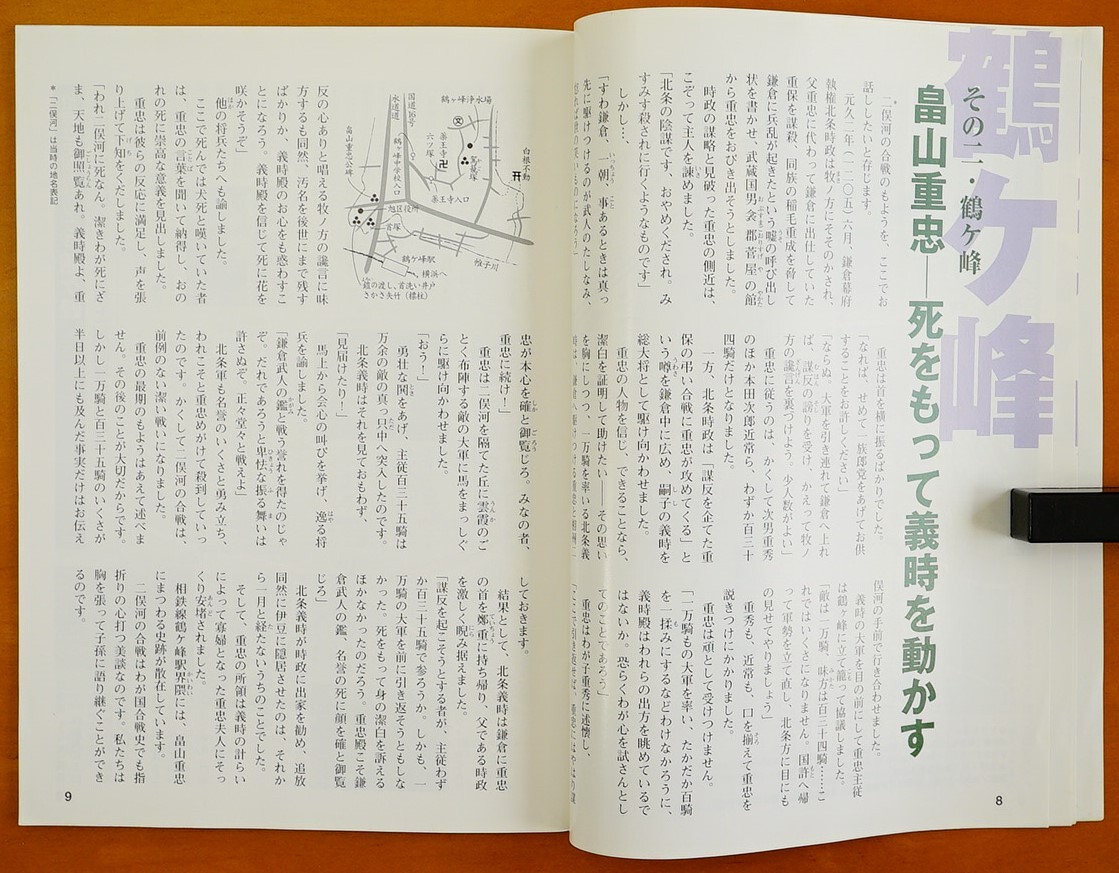 鶴ケ峰
その二・鶴ケ峰
畠山重忠──死をもって義時を動かす
二俣河の合戦のもようを、ここでお
話ししたいと存じます。
元久二年(一二〇五)六月、鎌倉幕府
執権北条時政は牧ノ方にそそのかされ、
父重忠に代わって鎌倉に出仕していた
重保を謀殺、同族の稲毛重成を脅して
鎌倉に兵乱が起きたという嘘の呼び出し
状を書かせ、武蔵国男衾郡菅屋の館
から重忠をおびき出そうとしました。
時政の謀略と見破った重忠の側近は、
こぞって主人を諫めました。
「北条の陰謀です、おやめください。み
すみす殺されに行くようなものです」
しかし…、
「すわ鎌倉、一朝、事あるときは真っ
先に駆けつけるのが武人のたしなみ、
重忠は首を横に振るばかりでした。
「なれば、せめて一族郎党をあげてお供
することをお許しください」
「ならぬ。大軍を引き連れて鎌倉へ上れ
ば、謀反の謗りを受け、かえって牧ノ
方の讒言を裏づけよう。少人数がよい」
重忠に従うのは、かくして次男重秀
のほか本田次郎近常ら、わずか百三十
四騎だけとなりました。
一方、北条時政は「謀反を企てた重
保の弔い合戦に重忠が攻めてくる」と
いう噂を鎌倉中に広め、嗣子の義時を
総大将として駆け向かわせました。
重忠の人物を信じ、できることなら、
潔白を証明して助けたい──その思い
を胸にしつつ、一万騎を率いる北条義
俣河の手前で行き合わせました。
義時の大軍を目の前にして重忠主従
は鶴ケ峰に立て籠って協議しました。
「敵は一万騎、味方は百三十四騎……こ
れではいくさになりません。国許へ帰
って軍勢を立て直し、北条方に目にも
の見せてやりましょう」
重秀も、近常も、口を揃えて重忠を
説きつけにかかりました。
重忠は頑として受けつけません。
「一万騎もの大軍を率い、たかだか百騎
を一揉みにするなどわけなかろうに、
義時殿はわれらの出方を眺めているで
はないか。恐らくわが心を試さんとし
てのことであろう」
重忠はわが子重秀に述懐し、
8
鶴ケ峰浄水場
国道16号
水道道
白根不動
薬王寺
六ツ塚
駕籠塚
鶴ケ峰中学校入口
薬王寺入口
畠山重忠公碑
旭区役所
首塚
帷子川
鶴ケ峰駅
横浜へ
鎧の渡し、首洗い井戸
さかさ矢竹(標柱)
反の心ありと唱える牧ノ方の讒言に味
方するも同然、汚名を後世にまで残す
ばかりか、義時殿のお心をも惑わすこ
とになろう。義時殿を信じて死に花を
咲かそうぞ」
他の将兵たちへも諭しました。
ここで死んでは犬死と嘆いていた者
は、重忠の言葉を聞いて納得し、おの
れの死に崇高な意義を見出しました。
重忠は彼らの反応に満足し、声を張
り上げて下知をくだしました。
「われ二俣河に死なん。潔きわが死にざ
ま、天地も御照覧あれ。義時殿よ、重
＊「二俣河」は当時の地名表記
忠が本心を確と御覧じろ。みなの者、
重忠に続け!」
重忠は二俣河を隔てた丘に雲霞のご
とく布陣する敵の大軍に馬をまっしぐ
らに駆け向かわせました。
「おう!」
勇壮な鬨をあげ、主従百三十五騎は
万余の敵の真っ只中へ突入したのです。
北条義時はそれを見ておもわず、
「見届けたり!」
馬上から会心の叫びを挙げ、逸る将
兵を諭しました。
「鎌倉武人の鑑と戦う誉れを得たのじゃ
ぞ。だれであろうと卑怯な振る舞いは
許さぬ。正々堂々と戦えよ」
北条軍も名誉のいくさと勇み立ち、
われこそと重忠めがけて殺到していっ
たのです。かくして二俣河の合戦は、
前例のない潔い戦いになりました。
重忠の最期のもようはあえて述べま
せん。その後のことが大切だからです。
しかし、一万騎と百三十五騎のいくさが
半日以上にも及んだ事実だけはお伝え
しておきます。
結果として、北条義時は鎌倉に重忠
の首を鄭重に持ち帰り、父である時政
を激しく睨み据えました。
「謀反を起こそうとする者が、主従わず
か百三十五騎で参ろうか。しかも、一
万騎の大軍を前に引き返そうともしな
かった。死をもって身の潔白を訴える
ほかなかったのだろう。重忠殿こそ鎌
倉武人の鑑、名誉の死に顔を確と御覧
じろ」
北条義時が時政に出家を勧め、追放
同然に伊豆に隠居させたのは、それか
ら一月と経たないうちのことでした。
そして、重忠の所領は義時の計らい
によって寡婦となった重忠夫人にそっ
くり安堵されました。
相鉄線鶴ケ峰駅界隈には、畠山重忠
にまつわる史跡が散在しています。
二俣河の合戦はわが国合戦史でも指
折りの心打つ美談なのです。私たちは
胸を張って子孫に語り継ぐことができ
るのです。
9